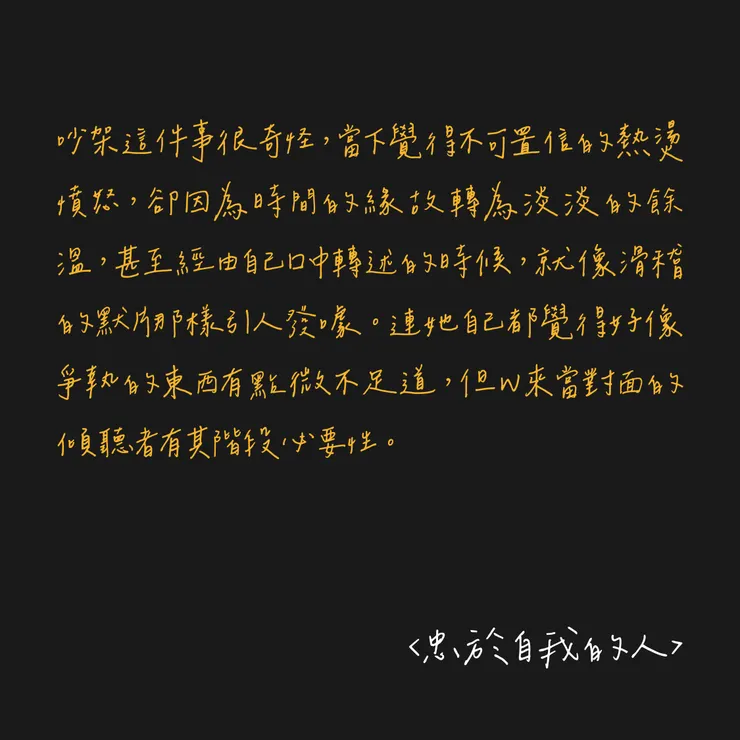 吵架這件事很奇怪，當下覺得不可置信的熱燙
憤怒，卻因為時間的緣故轉為淡淡的餘
溫，甚至經由自己口中轉述的時候，就像滑稽
的默片那樣引人發噱。連她自己都覺得好像
爭執的東西有點微不足道，但W來當對面的
傾聽者有其階段必要性。
<忠於自我的人>